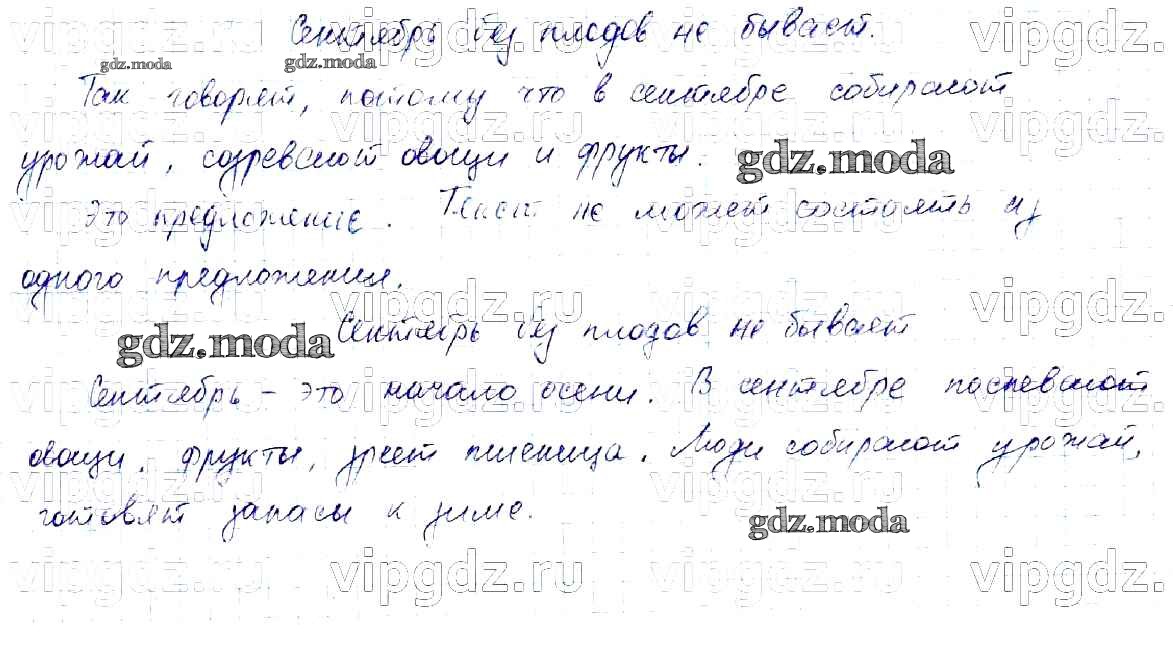 Сентябрь без плодов не бывает.
gdz.moda gdz.moda
Так говорят, потому что в сентябре собирают
урожай, созревают овощи и фрукты.
gdz.moda
Это предложение. Текст не может состоять из
одного предложения.
Сентябрь без плодов не бывает
gdz.moda
Сентябрь – это начало осени. В сентябре поспевают
овощи, фрукты, зреет пшеница. Люди собирают урожай,
готовят запасы к зиме.
gdz.moda
vipgdz.ru vipgdz.ru vipgdz.